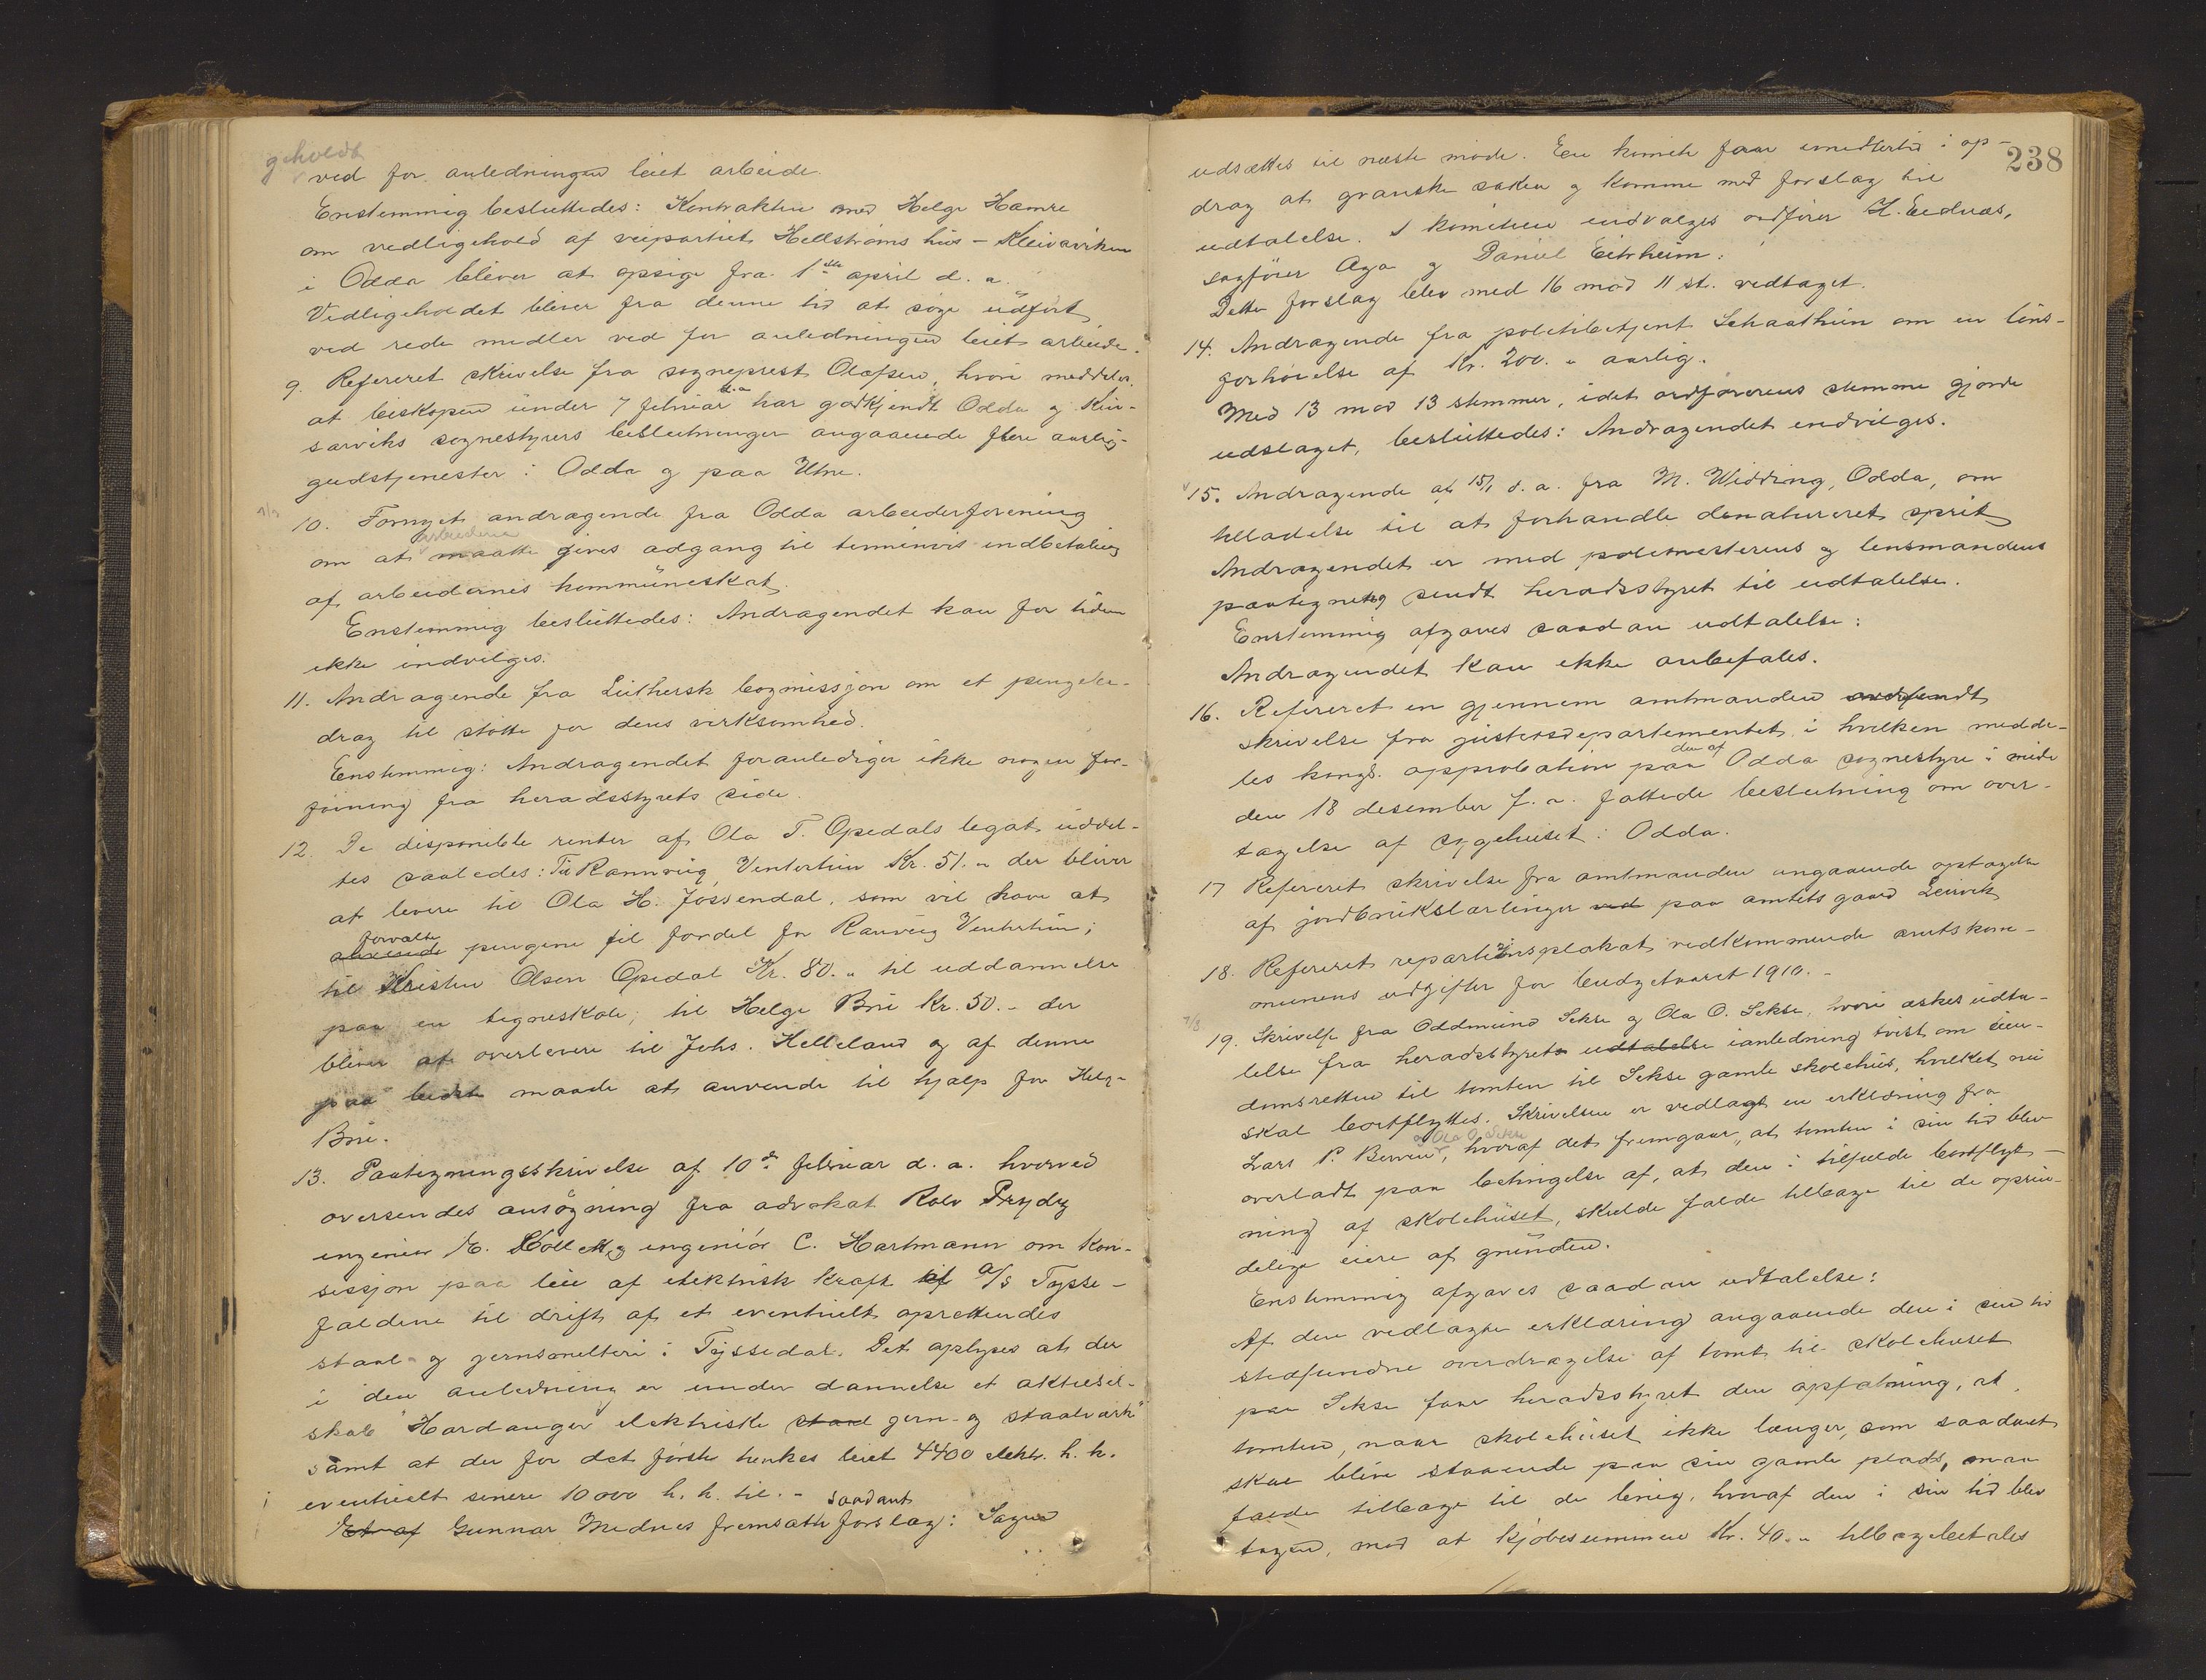 geholdt
ved for anledningen leiet arbeide.
Enstemmig besluttedes: Kontrakten med Helge Hamre
om vedligehold af veipartiet Hellstrøms hus - Kleivaviken
i Odda bliver at opsige fra 1ste april d. a.
Vedligeholdet bliver fra denne tid at søge udført
ved rede midler ved for anledningen leiet arbeide.
9. Refereret skrivelse fra sogneprest Olafsen, hvori meddeles,
at biskopen under 7 februar d.a. har godkjendt Odda og Kin-
sarviks sognestyrers beslutninger angaaende flere aarlig-
gudstjenester i Odda og paa Utne.
1/3
10. Fornyet andragende fra Odda arbeiderforening
arbeiderne
om at maatte gives adgang til terminvis indbetaling
af arbeidernes kommuneskat.
Enstemmig besluttedes: Andragendet kan for tiden
ikke indvilges.
11. Andragende fra Luthersk bogmissjon om et pengebi-
drag til støtte for dens virksomhed.
Enstemmig: Andragendet foranlediger ikke nogen for-
føining fra heradsstyrets side.
12. De disponible renter af Ola T. Opedals legat uddel-
tes saaledes: Til Rannveig Ventertun Kr. 51.- der bliver
at levere til Ola H. Jøssendal, som vil have at
forvalte
anvende pengene til fordel for Ranveig Ventertun;
til Kristen Olsen Opedal Kr. 80.- til uddannelse
paa en tegneskole; til Helge Bni Kr. 50.- der
bliver at overlevere til Johs. Helleland og af denne
paa bedste maade at anvende til hjælp for Helge
Bni.
13. Paategningsskrivelse af 10de februar d. a. hvorved
oversendes ansøgning fra advokat Rolv Prydz
ingeniør E. Collett og ingeniør C. Hartmann om kon-
sessjon paa leie af elektrisk kraft af A/S Tysse-
faldene til drift af et eventuelt oprettendes
staal- og jernsmelteri i Tyssedal. Det oplyses at der
i den anledning er under dannelse et aktiesel-
skab "Hardanger elektriske staal jern- og staalverk"
samt at der for det første tenkes leiet 4400 elektr. h. k.
eventuelt senere 10000 h. k. til. -
saadant
Et af Gunnar Mednes fremsatte forslag: Sagen
238
udsættes til næste møde. En komite faar imidlertid i op-
drag at granske saken og komme med forslag til
udtalelse. I komiteen indvælges ordfører H. Eidnæs,
sagfører Aga og Daniel Eitrheim.
Dette forslag blev med 16 mod 11 st. vedtaget.
14. Andragende fra politibetjent Schaathun om en løns-
forhøielse af Kr. 200.- aarlig.
Med 13 mod 13 stemmer, idet ordførerens stemme gjorde
udslaget, besluttedes: Andragendet indvilges.
15. Andragende af 15/1 d. a. fra M. Widding, Odda, om
tilladelse til at forhandle denatureret sprit
Andragendet er med politimesterens og lensmandens
paategnelse sendt heradsstyret til udtalelse.
Enstemmig afgaves saadan udtalelse:
Andragendet kan ikke anbefales.
16. Refereret en gjennem amtmanden
skrivelse fra justisdepartementet, i hvilken medde-
les kongl. approbation paa den af Odda sognestyre i møde
den 18 desember f. a. fattede beslutning om over-
tagelse af sygehuset i Odda.
17 Refereret skrivelse fra amtmanden angaaende optagelse
af jordbrukslærlinger ved paa amtets gaard Leirvik
18. Refereret repartitionsplakat vedkommende amtskom-
munens udgifter for budgetaaret 1910. -
1/3
19. Skrivelse fra Oddmund Sekse og Ola O. Sekse, hvori æskes udta-
lelse fra heradsstyrets udtalelse ianledning tvist om eien-
domsretten til tomten til Sekse gamle skolehus, hvilket nu
skal bortflyttes. Skrivelsen er vedlagt en erklæring fra
og Ola O. Sekse
Lars P. Berven, hvoraf det fremgaar, at tomten i sin tid blev
overladt paa betingelse af, at den i tilfelde bortflyt-
ning af skolehuset, skulde falde tilbage til de oprin-
delige eiere af grunden.
Enstemmig afgaves saadan udtalelse:
Af den vedlagte erklæring angaaende den i sin tid
stedfundne overdragelse af tomt til skolehuset
paa Sekse faar heradsstyret den opfatning, at
tomten, naar skolehuset ikke længer, som saadant
skal blive staaende paa sin gamle plads, maa
falde tilbage til de brug, hvoraf den i sin tid blev
tagen, mod at kjøbesummen Kr. 40.- tilbagebetales